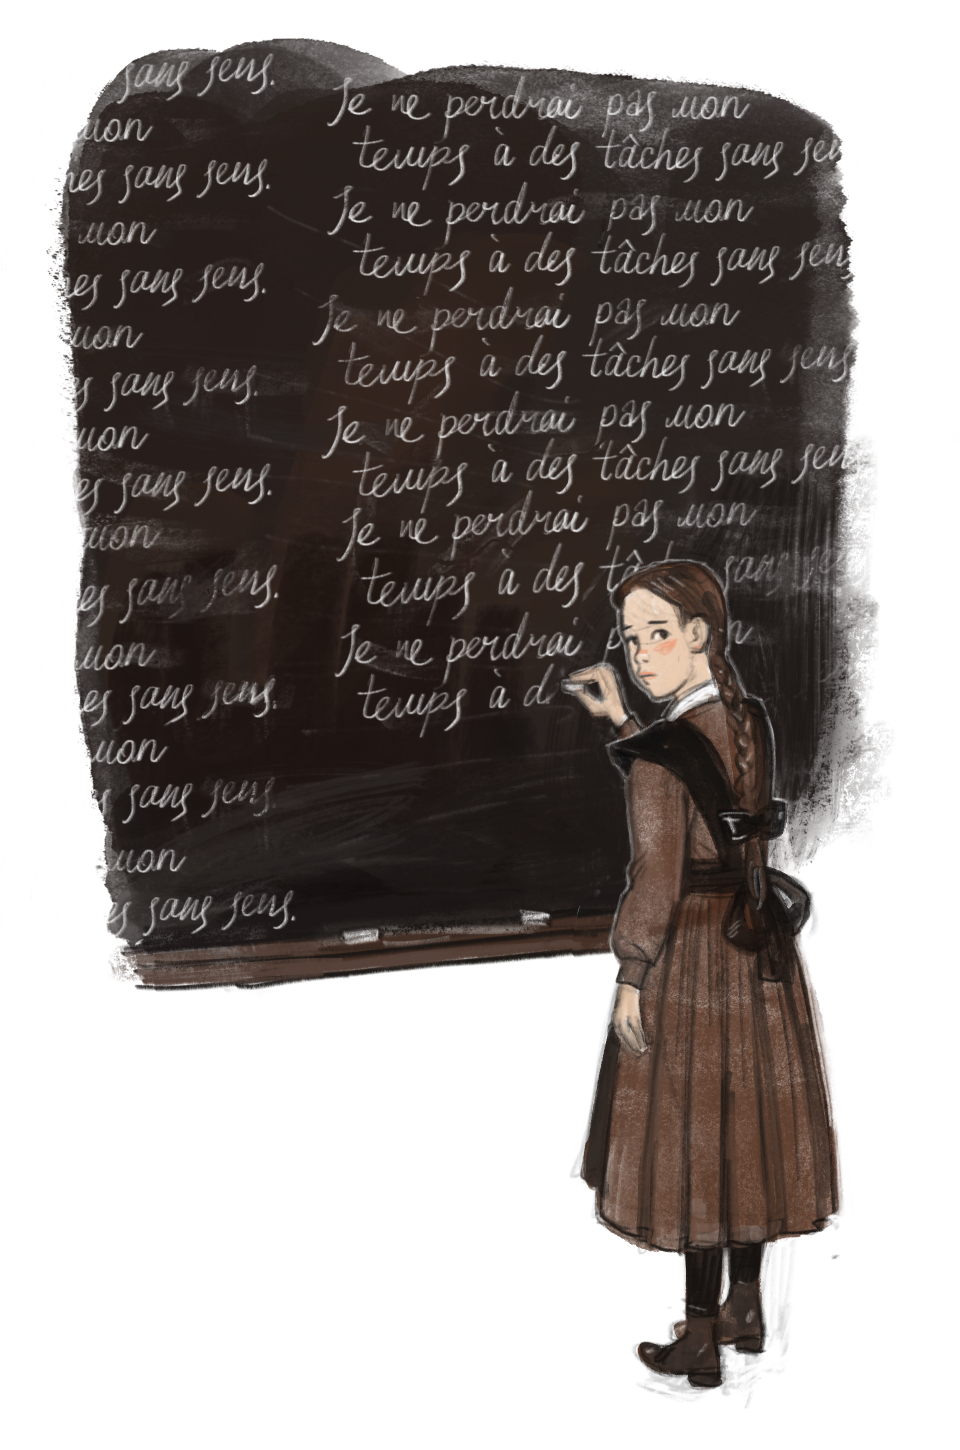 sans sens.
mon
hes sans sens.
mon
es sans sens.
mon
s sans sens.
mon
es sans sens.
mon
es sans sens.
mon
es sans sens.
mon
s sans sens.
mon
es sans sens.
Je ne perdrai pas mon
temps à des tâches sans sen
Je ne perdrai pas mon
temps à des tâches sans sens
Je ne perdrai pas mon
temps à des tâches sans sens
Je ne perdrai pas mon
temps à des tâches sans sen
Je ne perdrai pas mon
temps à des tâ sans se
Je ne perdrai p n
temps à d